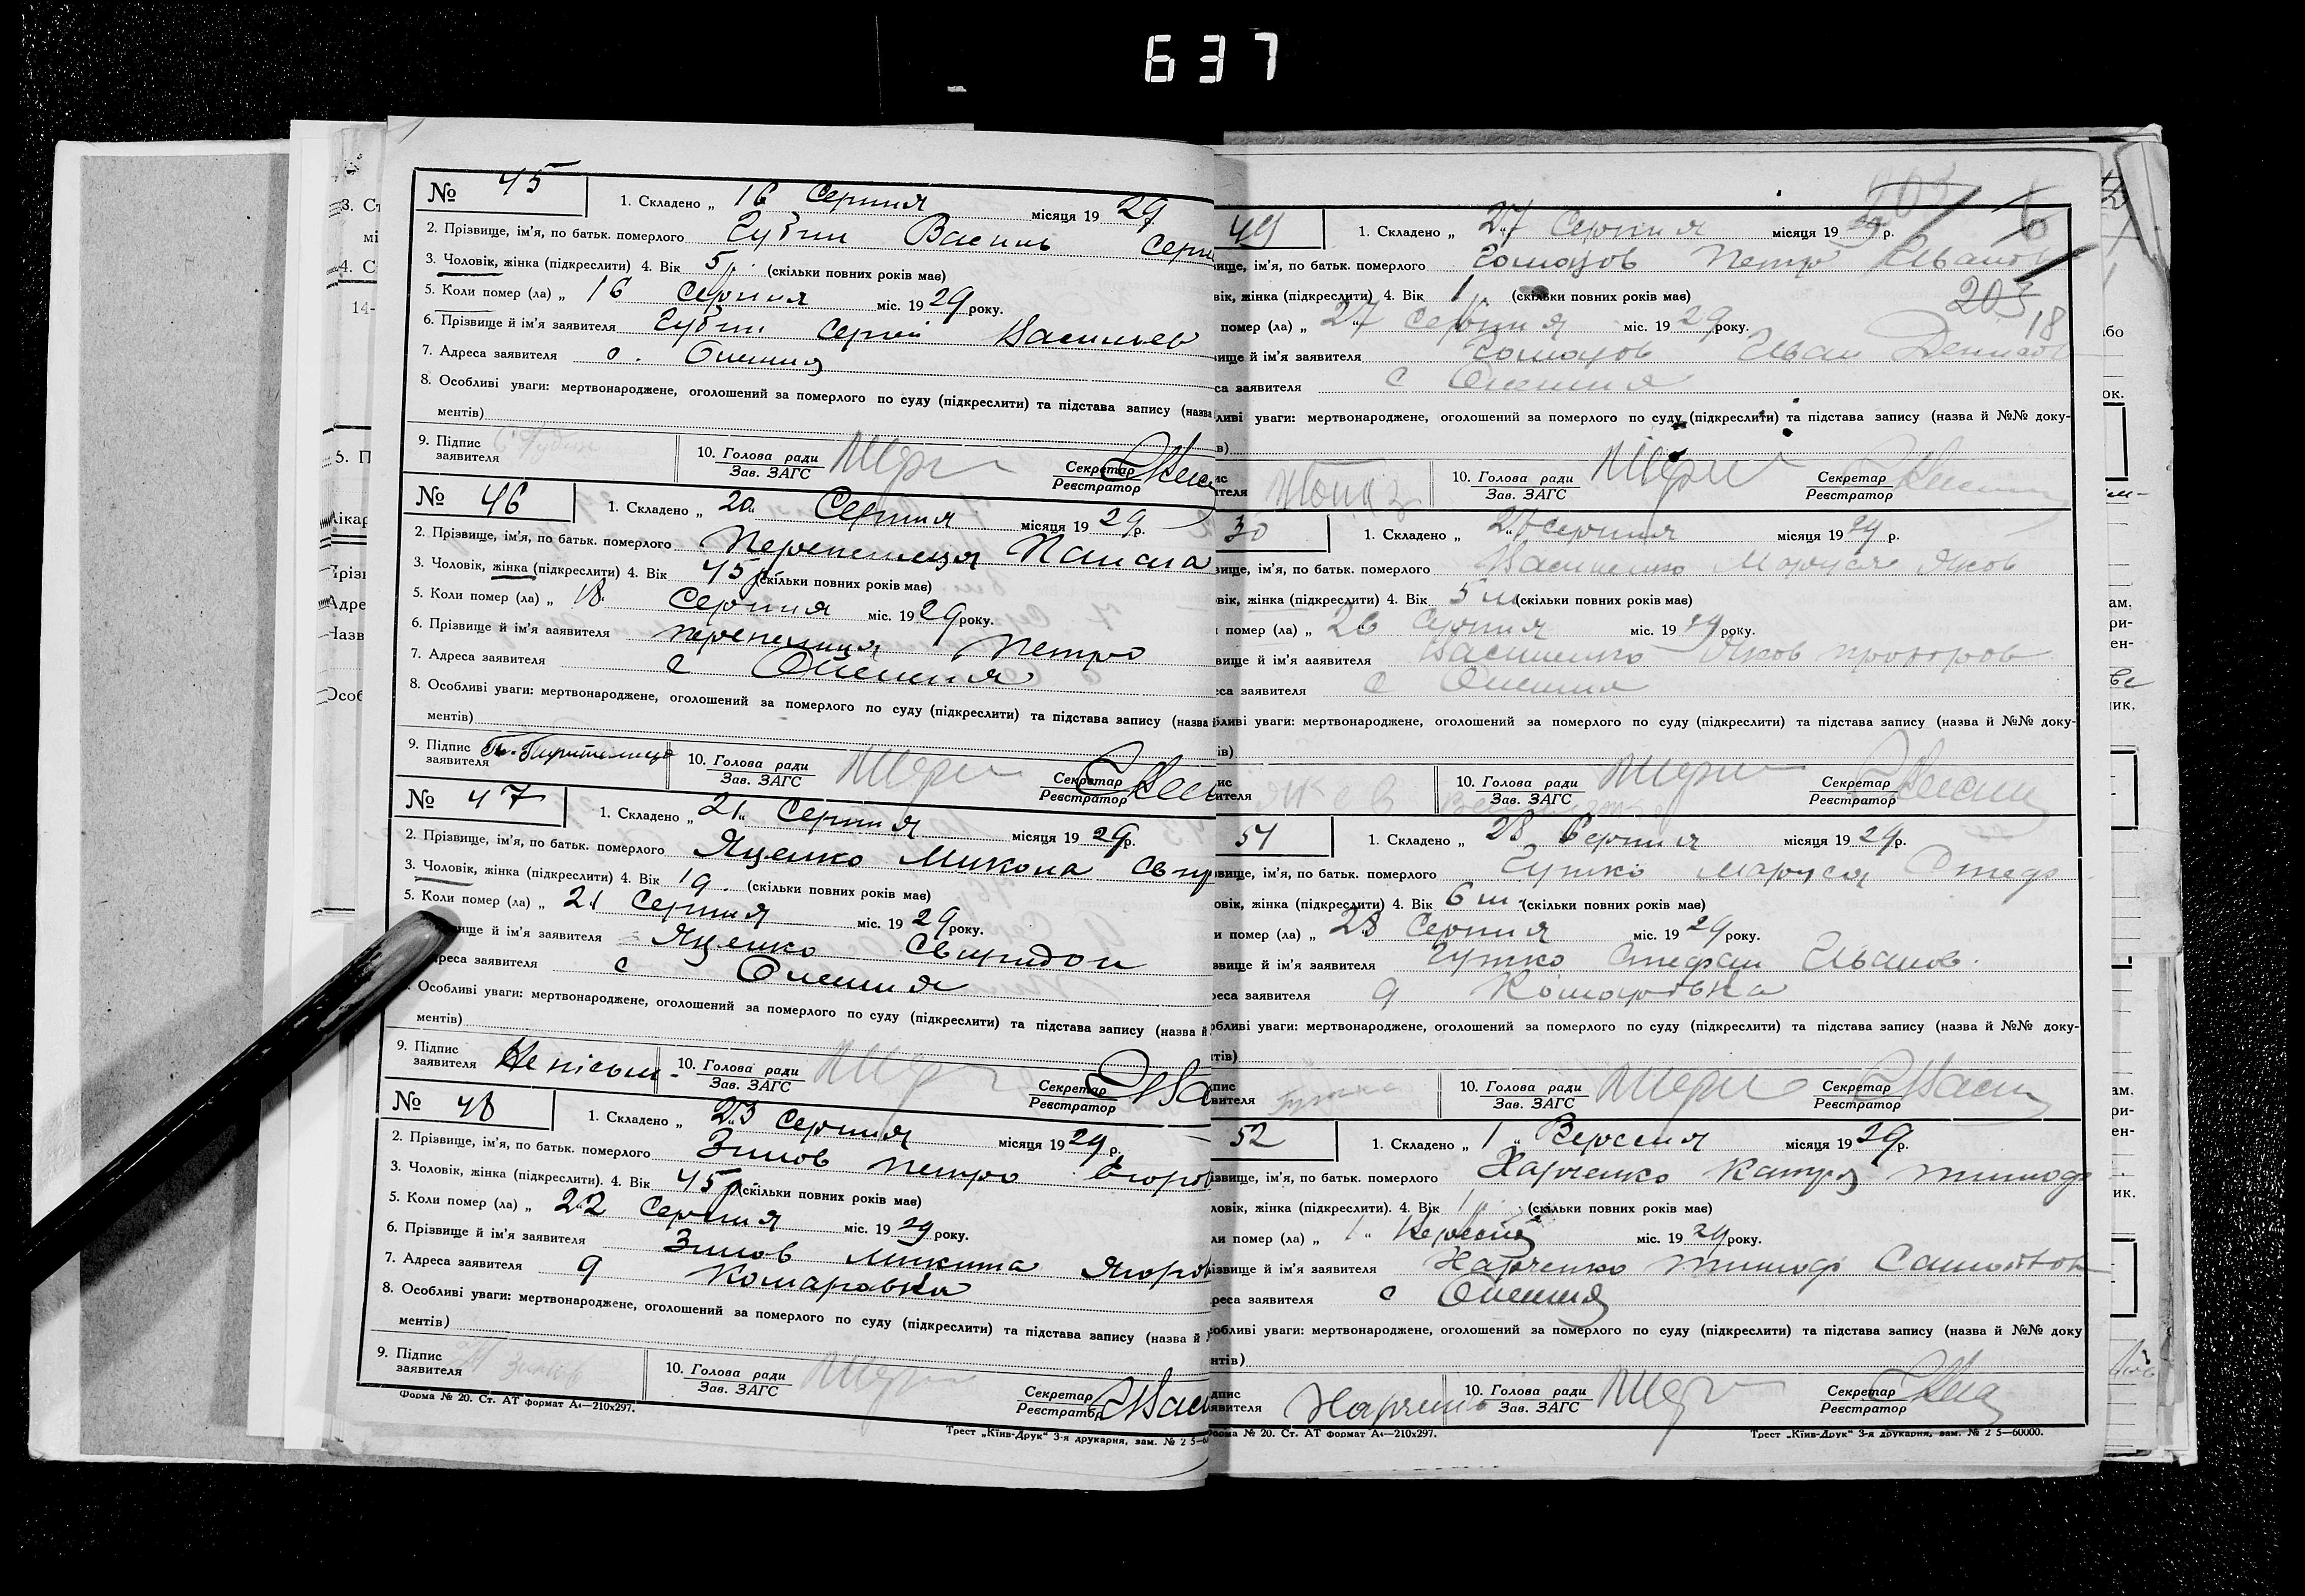 637
№ 45
1. Складено „ 16 Серпня місяця 19 29 р.
2. Прізвище, ім'я, по батьк. померлого Губин Василь Серг
3. Чоловік, жінка (підкреслити) 4. Вік 5 р. (скільки повних років має)
5. Коли помер (ла) „ 16 Серпня міс. 19 29 року.
6. Прізвище й ім'я заявителя Губин Сергій Васильев
7. Адреса заявителя с. Олешня
8. Особливі уваги: мертвонароджене, оголошений за померлого по суду (підкреслити) та підстава запису (назва
ментів)
9. Підпис заявителя С Губин 10. Голова ради Зав. ЗАГС Секретар Реєстратор
№ 46
1. Складено „ 20 Серпня місяця 19 29 р.
2. Прізвище, ім'я, по батьк. померлого Перепелиця
3. Чоловік, жінка (підкреслити) 4. Вік 45 р. (скільки повних років має)
5. Коли помер (ла) „ 18 Серпня міс. 19 29 року.
6. Прізвище й ім'я заявителя перепелиця Петро
7. Адреса заявителя с Олешня
8. Особливі уваги: мертвонароджене, оголошений за померлого по суду (підкреслити) та підстава запису (назва
ментів)
9. Підпис заявителя 10. Голова ради Зав. ЗАГС Секретар Реєстратор
№ 47
1. Складено „ 21 Серпня місяця 19 29 р.
2. Прізвище, ім'я, по батьк. померлого Яценко Микола Свир
3. Чоловік, жінка (підкреслити) 4. Вік 19. (скільки повних років має)
5. Коли помер (ла) „ 21 Серпня міс. 19 29 року.
ище й ім'я заявителя Яценко Свиридон
реса заявителя с Олешня
Особливі уваги: мертвонароджене, оголошений за померлого по суду (підкреслити) та підстава запису (назва й
ментів)
9. Підпис заявителя Не пісьм- 10. Голова ради Зав. ЗАГС Секретар Реєстратор
№ 48
1. Складено „ 23 Серпня місяця 19 29 р.
2. Прізвище, ім'я, по батьк. померлого Зимов Петро Егоров
3. Чоловік, жінка (підкреслити). 4. Вік 45 р (скільки повних років має)
5. Коли помер (ла) „ 22 Серпня міс. 19 29 року.
6. Прізвище й ім'я заявителя Зимов Микита Ягоров
7. Адреса заявителя Комаровка
8. Особливі уваги: мертвонароджене, оголошений за померлого по суду (підкреслити) та підстава запису (назва й
ментів)
9. Підпис заявителя 10. Голова ради Зав. ЗАГС Секретар Реєстратор
Форма № 20. Ст. АТ формат А₄—210x297.
Трест „Київ-Друк“ 3-я друкарня, зам. № 2 5—6
49
1. Складено „ 27 Серпня місяця 19 29 р.
ище, ім'я, по батьк. померлого Петро Иванов
вік, жінка (підкреслити) 4. Вік 1 р. (скільки повних років має)
203
18
помер (ла) „ 27 Серпня міс. 19 29 року.
ище й ім'я заявителя Иван Денисов
са заявителя с Олешня
ливі уваги: мертвонароджене, оголошений за померлого по суду (підкреслити) та підстава запису (назва й №№ доку-
в)
ис ителя 10. Голова ради Зав. ЗАГС Секретар Реєстратор
30
1. Складено „ 27 серпня місяця 19 29 р.
вище, ім'я, по батьк. померлого Василенко Маруся Яков
вік, жінка (підкреслити) 4. Вік 5 м (скільки повних років має)
помер (ла) „ 26 Серпня міс. 19 29 року.
вище й ім'я заявителя Василенко Яков прохоров
са заявителя с Олешня
ливі уваги: мертвонароджене, оголошений за померлого по суду (підкреслити) та підстава запису (назва й №№ доку-
ів)
ис ителя Яков 10. Голова ради Зав. ЗАГС Секретар Реєстратор
51
1. Складено „ 28 Серпня місяця 19 29 р.
вище, ім'я, по батьк. померлого Гутко Маруся Стеф
овік, жінка (підкреслити) 4. Вік 6 м. (скільки повних років має)
и помер (ла) „ 28 Серпня міс. 19 29 року.
звище й ім'я заявителя Гутко Стефан Иванов.
реса заявителя Комаровка
обливі уваги: мертвонароджене, оголошений за померлого по суду (підкреслити) та підстава запису (назва й №№ доку-
тів)
пис вителя 10. Голова ради Зав. ЗАГС Секретар Реєстратор
52
1. Складено „ 1 „ Вересня місяця 19 29 р.
звище, ім'я, по батьк. померлого Харченко Катря тимоф
ловік, жінка (підкреслити). 4. Вік 1 (скільки повних років має)
ли помер (ла) „ 1 „ Вересня міс. 19 29 року.
ізвище й ім'я заявителя Харченко Тимоф
реса заявителя с Олешня
обливі уваги: мертвонароджене, оголошений за померлого по суду (підкреслити) та підстава запису (назва й №№ доку
нтів)
дпис явителя Харченко 10. Голова ради Зав. ЗАГС Секретар Реєстратор
орма № 20. Ст. АТ формат А₄—210x297.
Трест „Київ-Друк“ 3-я друкарня, зам. № 2 5—60000.